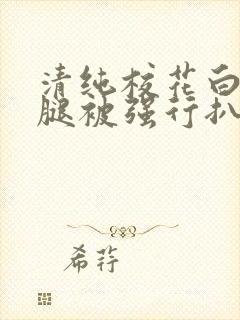 清纯校花白
腿被强行扒
希荇